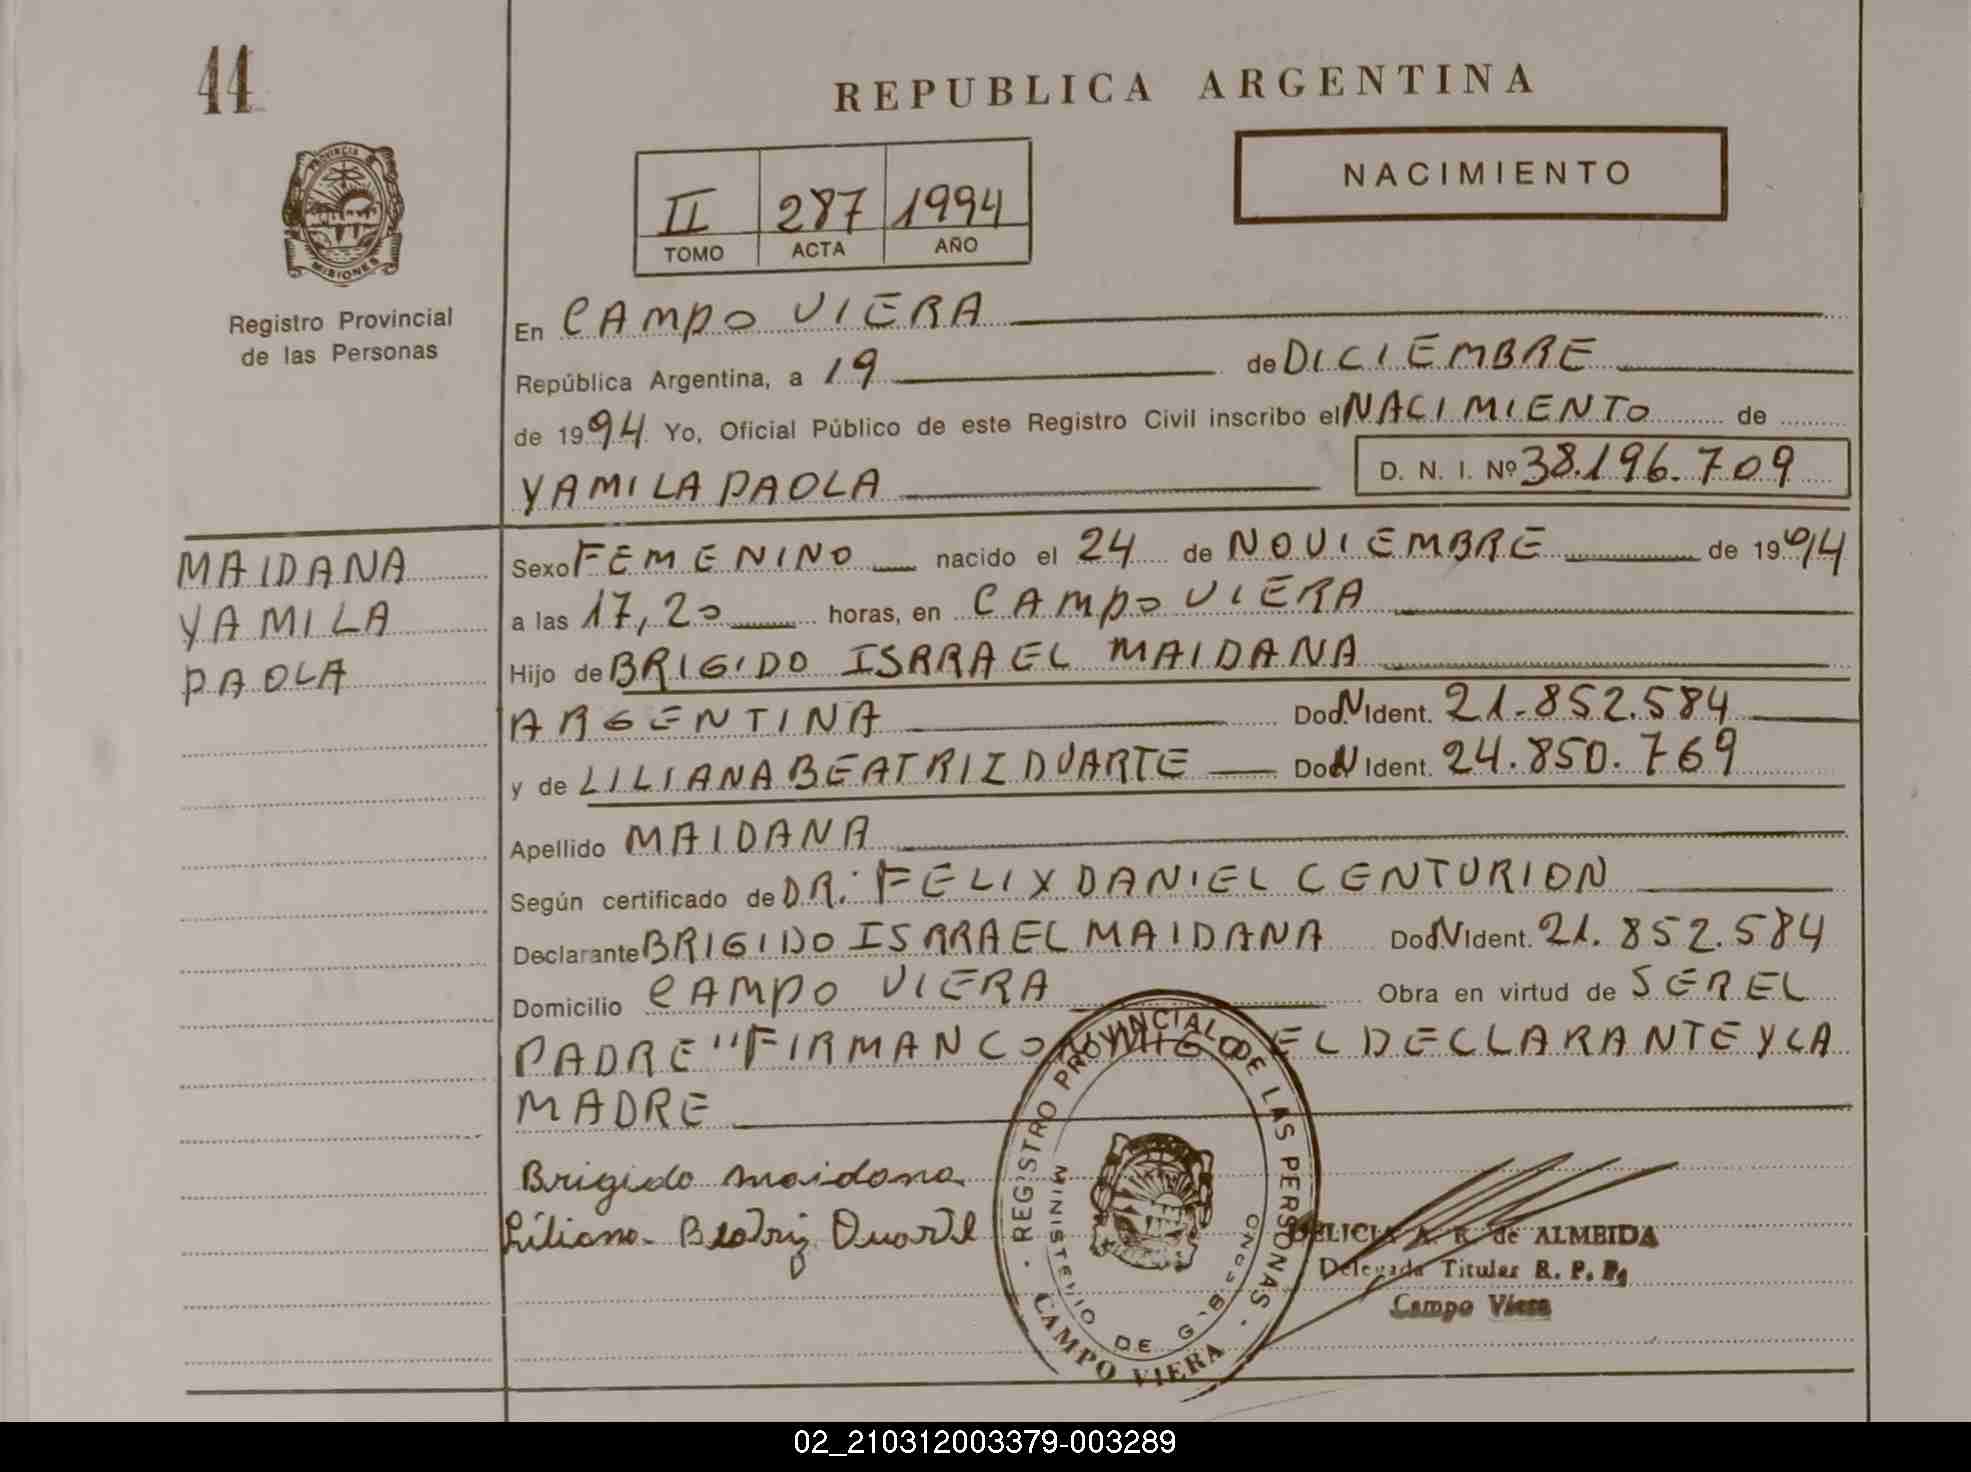 44
REPUBLICA ARGENTINA
NACIMIENTO
II 287 1994
TOMO ACTA AÑO
PROVINCIA DE
MISIONES
Registro Provincial
de las Personas
En CAMPO VIERA
República Argentina, a 19 de DICIEMBRE
de 1994 Yo, Oficial Público de este Registro Civil inscribo el NACIMIENTO de
YAMILA PAOLA D. N. I. Nº 38.196.709
MAIDANA
YAMILA
PAOLA
Sexo FEMENINO nacido el 24 de NOVIEMBRE de 1994
a las 17,20 horas, en CAMPO VIERA
Hijo de BRIGIDO ISRRAEL MAIDANA
ARGENTINA Doc. N Ident. 21.852.584
y de LILIANA BEATRIZ DUARTE Doc. N Ident. 24.850.769
Apellido MAIDANA
Según certificado de DR: FELIX DANIEL CENTURION
Declarante BRIGIDO ISRRAEL MAIDANA Doc. N Ident. 21.852.584
Domicilio CAMPO VIERA Obra en virtud de SER EL
PADRE "FIRMAN CONMIGO EL DECLARANTE Y LA
MADRE
Brigido maidana
Liliana Beatriz Duarte
REGISTRO PROVINCIAL DE LAS PERSONAS
MINISTERIO DE GOBIERNO
CAMPO VIERA
DELICIA A. R. de ALMEIDA
Delegada Titular R. P. P.
Campo Viera
02_210312003379-003289